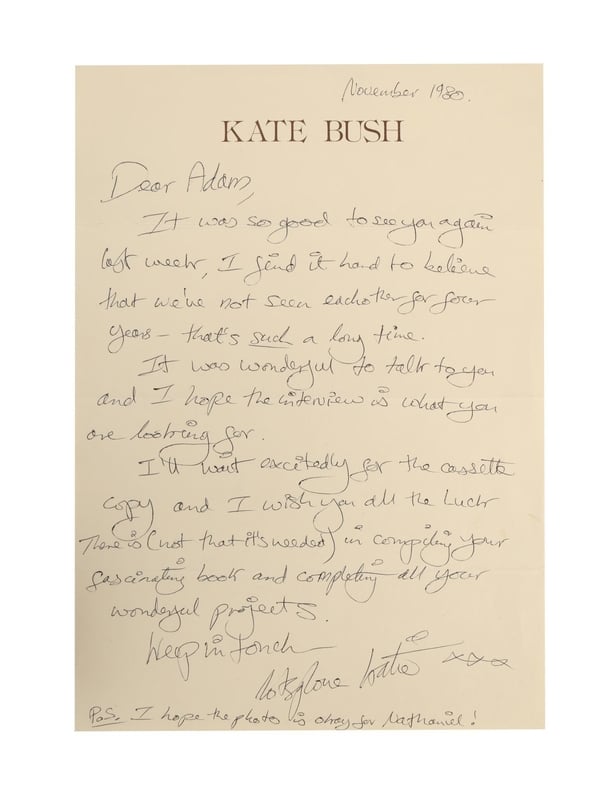 November 1980.
KATE BUSH
Dear Adam,
It was so good to see you again
last week, I find it hard to believe
that we've not seen eachother for four
years - that's such a long time.
It was wonderful to talk to you
and I hope the interview is what you
are looking for.
I'll wait excitedly for the cassette
copy and I wish you all the Luck
There is (not that it's needed) in compiling your
fascinating book and completing all your
wonderful projects.
Keep in touch
lots of love Katie xxx
P.S. I hope the photo is okay for Nathaniel!